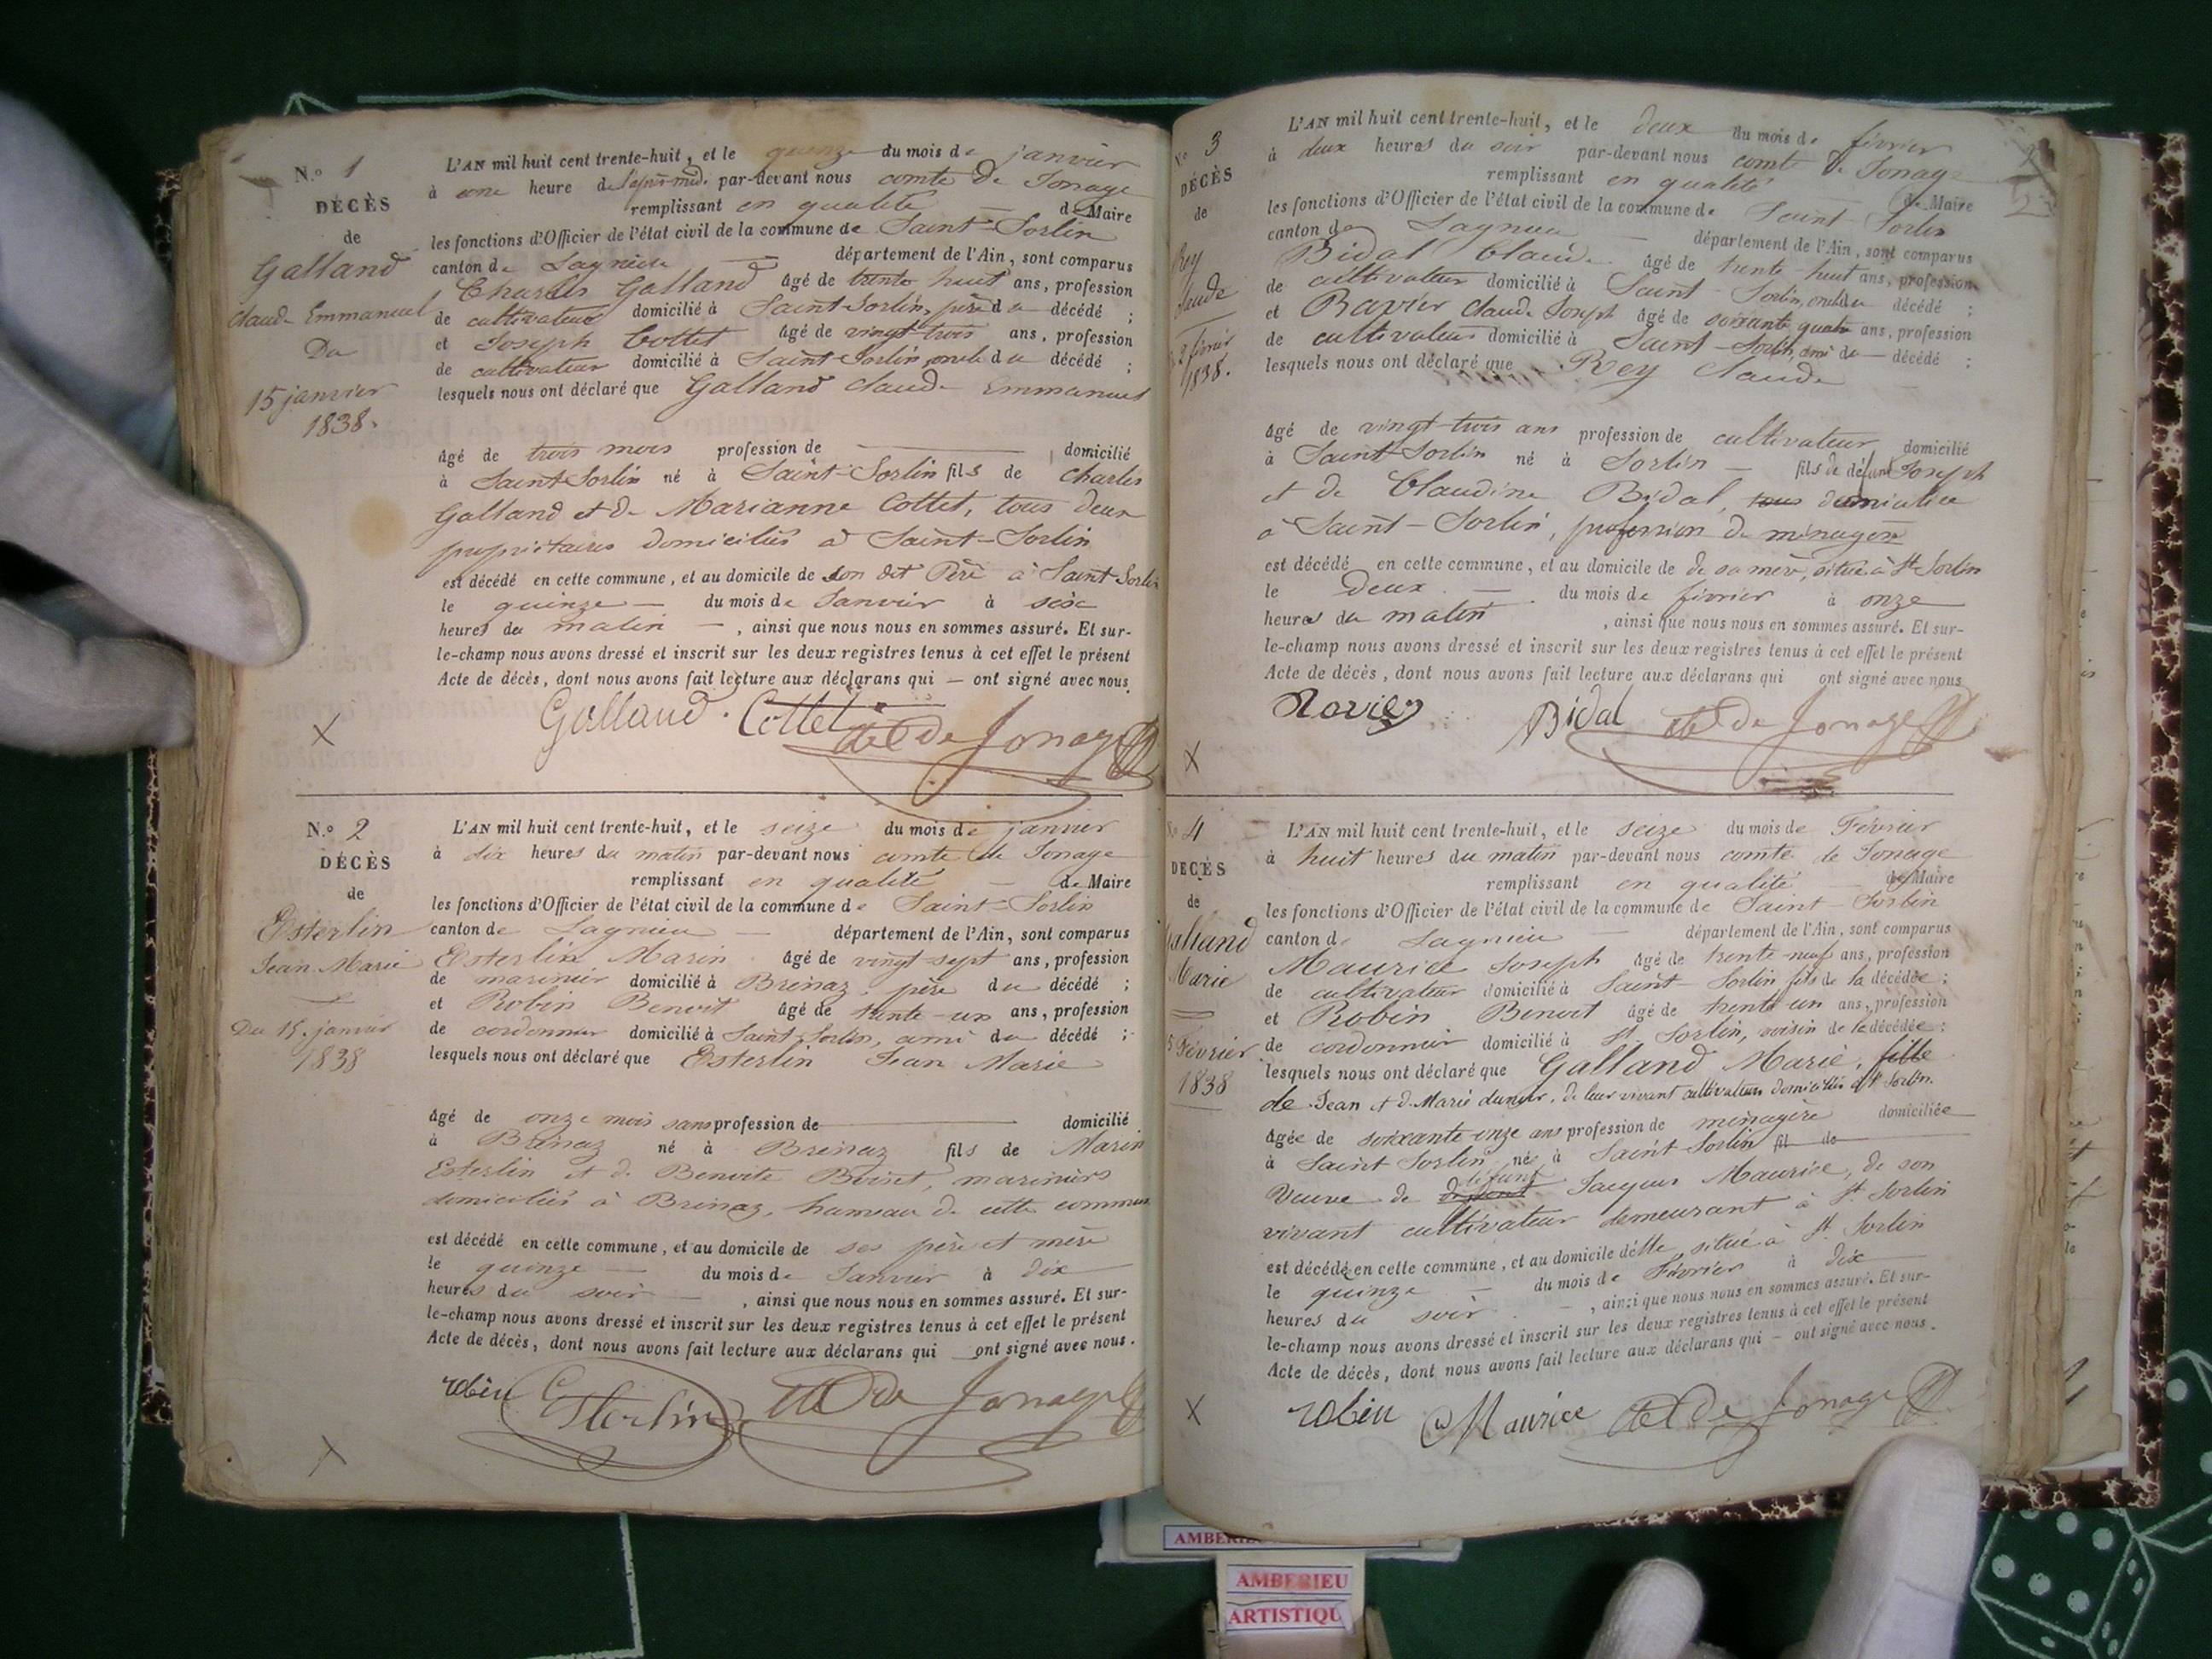 N.o 1
DÉCÈS
de
Galland
Claude Emmanuel
Du
15 janvier
1838.
L'AN mil huit cent trente-huit, et le quinze du mois de janvier
à une heure de l'après-midi par-devant nous comte de Jonage
remplissant en qualité de Maire
les fonctions d'Officier de l'état civil de la commune de Saint-Sorlin
canton de Lagnieu département de l'Ain, sont comparus
Charles Galland âgé de trente huit ans, profession
de cultivateur domicilié à Saint-Sorlin, père du décédé ;
et Joseph Cottet âgé de vingt-trois ans, profession
de cultivateur domicilié à Saint-Sorlin, oncle du décédé ;
lesquels nous ont déclaré que Galland Claude Emmanuel
âgé de trois mois profession de domicilié
à Saint-Sorlin né à Saint-Sorlin fils de Charles
Galland et de Marianne Cottet, tous deux
propriétaires domiciliés à Saint-Sorlin
est décédé en cette commune, et au domicile de son dit Père à Saint Sorlin
le quinze du mois de Janvier à
heures du matin , ainsi que nous nous en sommes assuré. Et sur-
le-champ nous avons dressé et inscrit sur les deux registres tenus à cet effet le présent
Acte de décès, dont nous avons fait lecture aux déclarans qui — ont signé avec nous.
Galland. Cottet de Jonage
X
N.o 2
DÉCÈS
de
Esterlin
Jean Marie
Du 15 janvier
1838
L'AN mil huit cent trente-huit, et le seize du mois de janvier
à dix heures du matin par-devant nous comte de Jonage
remplissant en qualité — de Maire
les fonctions d'Officier de l'état civil de la commune de Saint-Sorlin
canton de Lagnieu — département de l'Ain, sont comparus
Esterlin Marin âgé de vingt-sept ans, profession
de marinier domicilié à Brénaz, père du décédé ;
et Robin Benoit âgé de trente-un ans, profession
de cordonnier domicilié à Saint-Sorlin, ami du décédé ;
lesquels nous ont déclaré que Esterlin Jean Marie
âgé de onze mois sans profession de domicilié
à Brénaz né à Brénaz fils de Marin
Esterlin et de Benoite , mariniers
domiciliés à Brénaz, hameau de cette commune
est décédé en cette commune, et au domicile de ses père et mère
le quinze — du mois de Janvier à dix
heures du soir — , ainsi que nous nous en sommes assuré. Et sur-
le-champ nous avons dressé et inscrit sur les deux registres tenus à cet effet le présent
Acte de décès, dont nous avons fait lecture aux déclarans qui ont signé avec nous.
robin Esterlin de Jonage
X
No 3
DÉCÈS
de
Rey
Claude
2 février
1838.
L'AN mil huit cent trente-huit, et le deux du mois de février
à deux heures du soir par-devant nous comte de Jonage
remplissant en qualité de Maire
les fonctions d'Officier de l'état civil de la commune de Saint-Sorlin
canton de Lagnieu département de l'Ain, sont comparus
Bidal Claude âgé de trente-huit ans, profession
de cultivateur domicilié à Saint-Sorlin, oncle du décédé ;
et Ravier Claude Joseph âgé de soixante quatre ans, profession
de cultivateur domicilié à Saint-Sorlin, ami du — décédé ;
lesquels nous ont déclaré que Rey Claude
âgé de vingt-trois ans profession de cultivateur domicilié
à Saint-Sorlin né à Sorlin — fils de défunt Joseph
et de Claudine Bidal, tous domiciliée
à Saint-Sorlin, profession de ménagère
est décédé en cette commune, et au domicile de de sa mère, situé à St Sorlin
le Deux — du mois de février à onze
heures du matin , ainsi que nous nous en sommes assuré. Et sur-
le-champ nous avons dressé et inscrit sur les deux registres tenus à cet effet le présent
Acte de décès, dont nous avons fait lecture aux déclarans qui ont signé avec nous
Ravier Bidal de Jonage
X
2
No 4
DÉCÈS
de
Galland
Marie
Février
1838
L'AN mil huit cent trente-huit, et le seize du mois de Février
à huit heures du matin par-devant nous comte de Jonage
remplissant en qualité de Maire
les fonctions d'Officier de l'état civil de la commune de Saint-Sorlin
canton de Lagnieu — département de l'Ain, sont comparus
Maurice Joseph âgé de trente-neuf ans, profession
de cultivateur domicilié à Saint-Sorlin fils de la décédée ;
et Robin Benoit âgé de trente-un ans, profession
de cordonnier domicilié à St. Sorlin, voisin de la décédée ;
lesquels nous ont déclaré que Galland Marie, fille
de Jean et de Marie , de leur vivant cultivateurs domiciliés à St Sorlin.
âgée de soixante-onze ans profession de ménagère domiciliée
à Saint Sorlin née à Saint-Sorlin fil de
veuve de défunt défunt Jacques Maurice, de son
vivant cultivateur demeurant à St. Sorlin
est décédée en cette commune, et au domicile d'elle situé à St. Sorlin
le quinze — du mois de Février à dix
heures du soir — , ainsi que nous nous en sommes assuré. Et sur-
le-champ nous avons dressé et inscrit sur les deux registres tenus à cet effet le présent
Acte de décès, dont nous avons fait lecture aux déclarans qui — ont signé avec nous.
robin Maurice de Jonage
X
AMBERIEU
ARTISTIQU